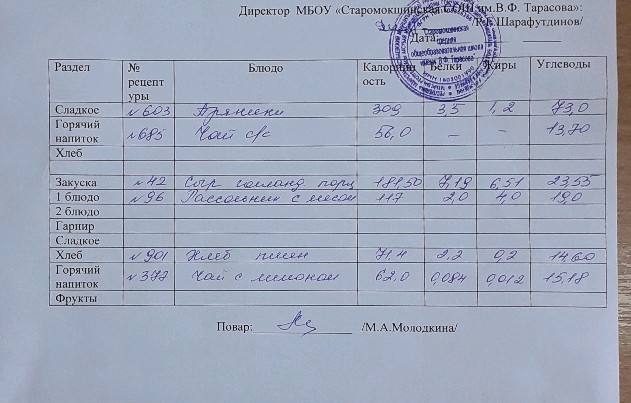 Директор МБОУ «Старомокшинская СОШ им.В.Ф. Тарасова»:
/Р.Б.Шарафутдинов/
Дата:
Старомокшинская
средняя
общеобразовательная школа
имени В.Ф. Тарасова
Раздел № рецептуры Блюдо Калорийность Белки Жиры Углеводы
Сладкое №603 Пряники 309 3,5 1,2 73,0
Горячий напиток №685 Чай с/с 56,0 – – 13,70
Хлеб
Закуска №42 Сыр голланд порц 181,50 7,19 6,51 23,55
1 блюдо №96 Рассольник с мясом 117 2,0 4,0 19,0
2 блюдо
Гарнир
Сладкое
Хлеб №901 Хлеб пшен 71,4 2,2 0,2 14,60
Горячий напиток №377 Чай с лимоном 62,0 0,084 0,012 15,18
Фрукты
Повар: /М.А.Молодкина/